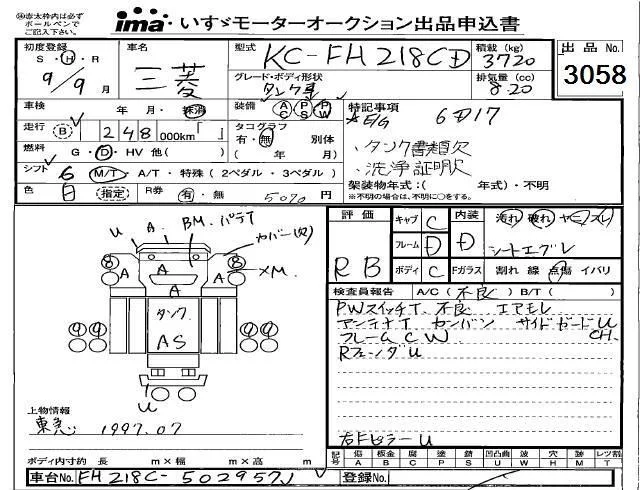 ㊟赤太枠内は必ず
ボールペンで
ご記入下さい。
ima いすゞモーターオークション出品申込書
初度登録
S・H・R
9/9月
車名
三菱
型式
KC-FH218CD
積載(kg)
3720
グレード・ボディ形状
タンク車
排気量(cc)
8.20
出品No.
3058
車検
年・月・抹消
装備
AC PS PW
特記事項
★E/G 6D17
走行 B 248000km「 」
タコグラフ
有・無 別体
( 年 月)
・タンク書類欠
・洗浄証明欠
燃料 G・D・HV 他( )
シフト 6 M/T・A/T・特殊(2ペダル・3ペダル)
架装物年式:( 年式)・不明
※不明の場合は、不明に○をする。
色 白 (指定)
R券 有・無 5070円
評価
RB
キャブ C
フレーム D
ボディ C
内装 D
汚れ 破れ ヤニ スレ
シートエグレ
Fガラス 割れ 線 点傷 イバリ
検査員報告 A/C(不良)B/T( )
PWスイッチT. 不良 エアモレ
アンテナT カンバン サイドガードU
フレームCW CH.
RフェンダU
右FピラーU
U A. BM.パテT
カバー(欠)
8 A A A 8
XM.
A
タンク
AS
U
上物情報
東急
1997.07
ボディ内寸約 長 m×幅 m×高 m
記号 傷 A 板金 B 腐 C 塗 P 錆 S 凹凸曲 U 波 W 穴 H 欠 M 石 T レツ割
車台No. FH218C-502957J
登録No.